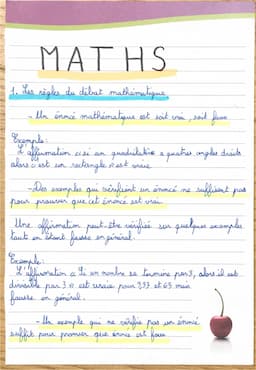 MATHS
1. Les règles du débat mathématique
- Un énoncé mathématique est soit vrai, soit faux
Exemple:
L'affirmation «si un quadrilatère a quatre angles droits
alors c'est un rectangle» est vraie.
- Des exemples qui vérifient un énoncé ne suffisent pas
pour prouver que cet énoncé est vrai.
Une affirmation peut-être vérifiée sur quelques exemples
tout en étant fausse en général.
Exemple:
L'affirmation « Si un nombre se termine par 3, alors il est
divisible par 3 » est vraie pour 33 et 63 mais
fausse en général.
- Un exemple qui ne vérifie pas un énoncé
suffit pour prouver que énoncé est faux